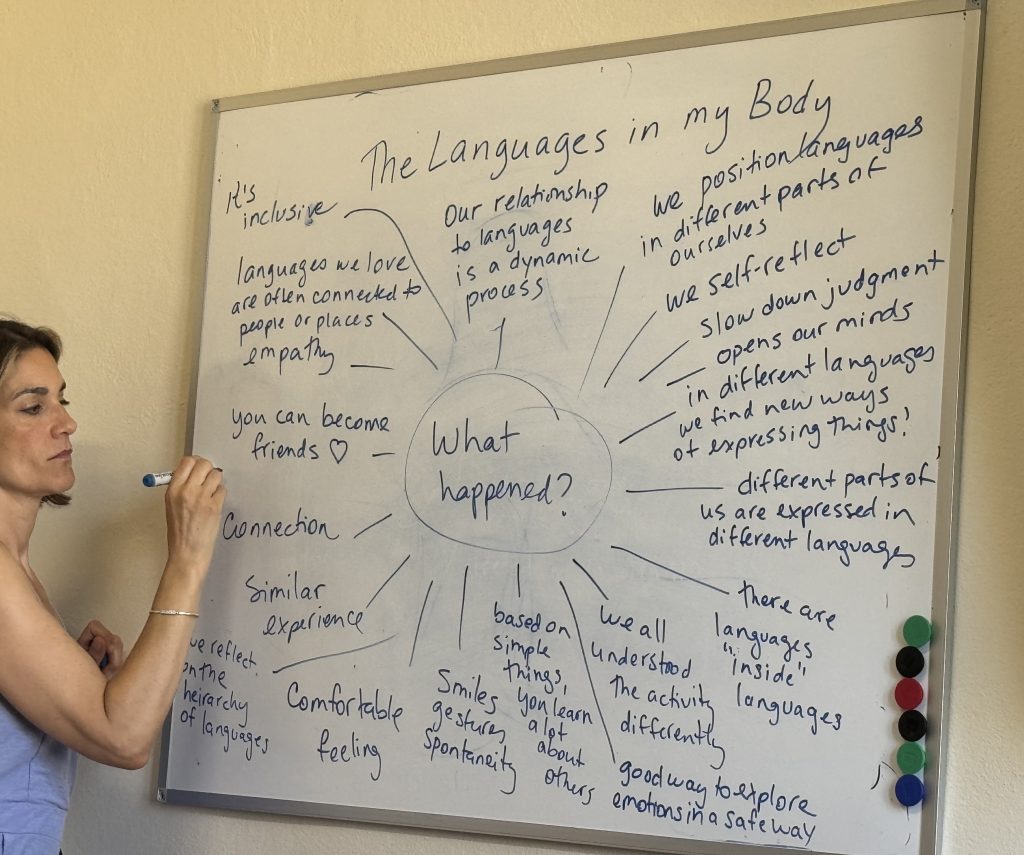 The Languages in my Body
It's
inclusive
Our relationship
to languages
is a dynamic
process
we position languages
in different parts of
ourselves
we self-reflect
slow down judgment
opens our minds
in different languages
we find new ways
of expressing things!
different parts of
us are expressed in
different languages
there are
languages
"inside"
languages
we all
understood
the activity
differently
good way to explore
emotions in a safe way
based on
simple
things,
you learn
a lot
about
others
Smiles
gestures
spontaneity
Comfortable
feeling
we reflect
on the
heirarchy
of languages
Similar
experience
Connection
you can become
friends ♡
empathy
languages we love
are often connected to
people or places
What
happened?